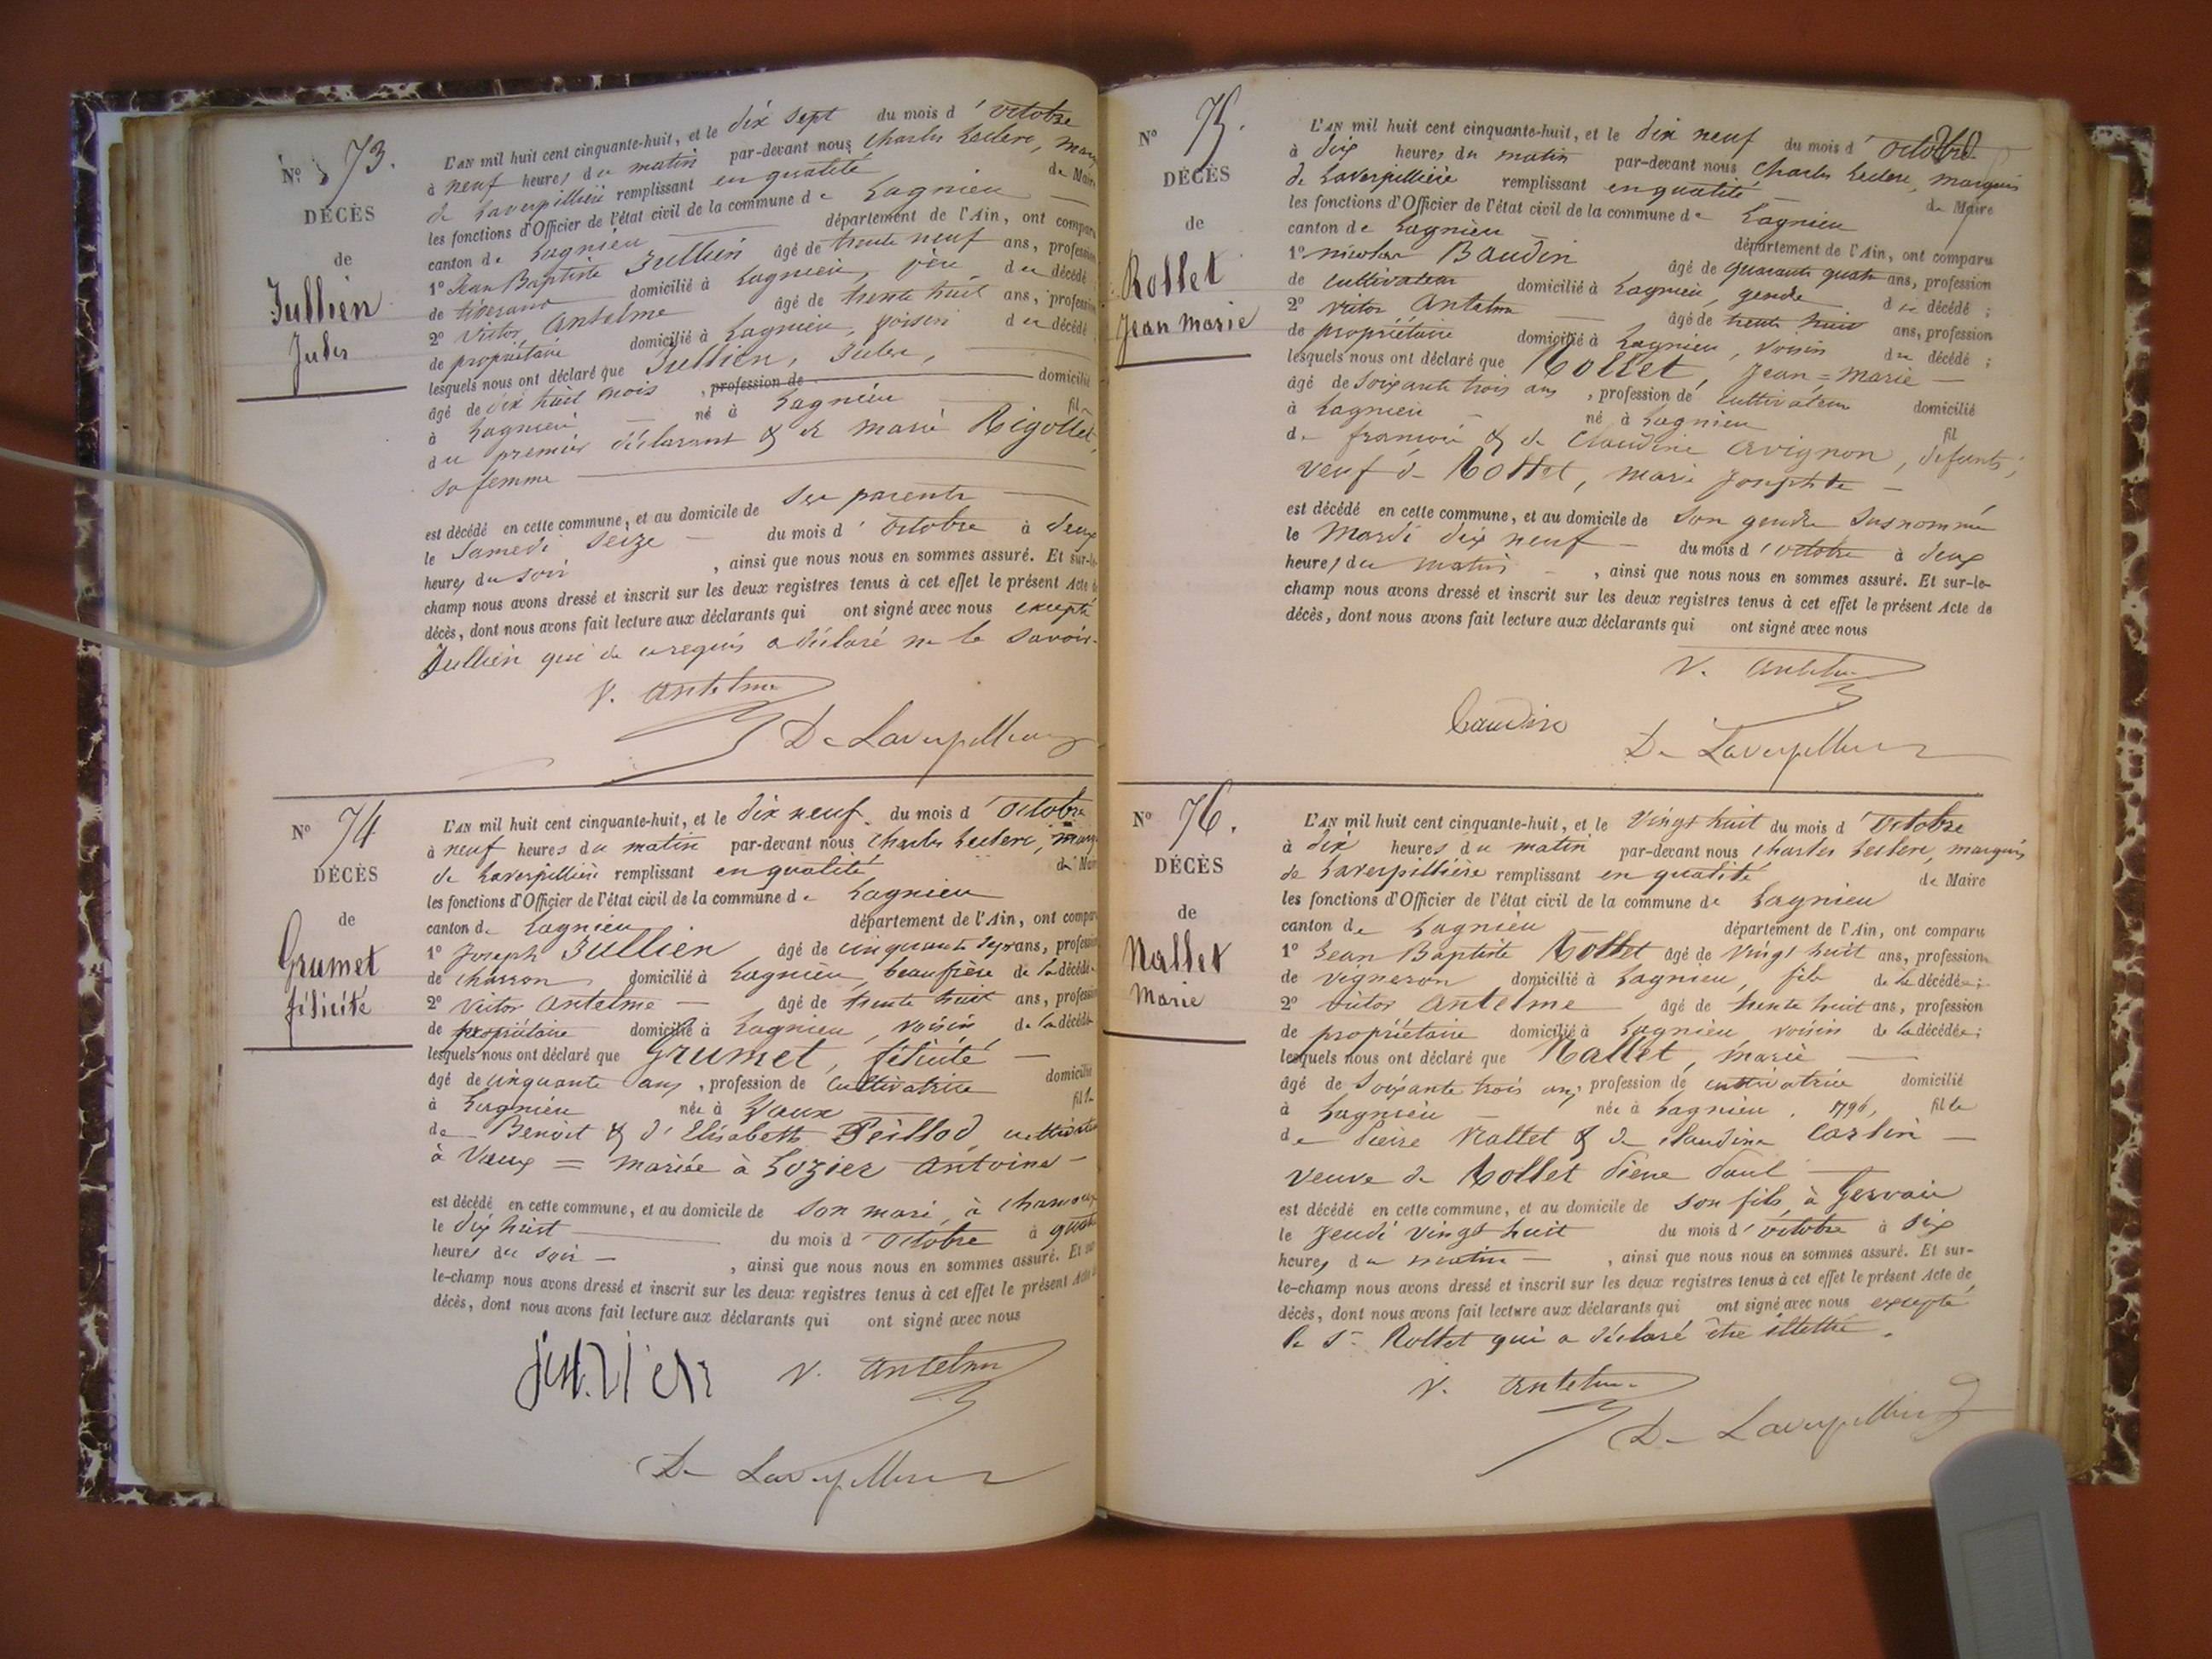 N° 73.
DÉCÈS
de
Jullien
Jules
L'AN mil huit cent cinquante-huit, et le dix sept du mois d'octobre
à neuf heures du matin par-devant nous Charles Leclerc, marq
de Laverpillière remplissant en qualité de Maire
les fonctions d'Officier de l'état civil de la commune de Lagnieu
canton de Lagnieu département de l'Ain, ont comparu
1° Jean Baptiste Jullien âgé de trente neuf ans, profession
de tisserand domicilié à Lagnieu, père du décédé
2° Victor Antelme âgé de trente huit ans, profession
de propriétaire domicilié à Lagnieu, voisin du décédé
lesquels nous ont déclaré que Jullien, Jules,
âgé de dix huit mois, profession de domicilié
à Lagnieu né à Lagnieu fils
du premier déclarant & de marie Rigollet,
sa femme
est décédé en cette commune, et au domicile de ses parents
le Samedi seize du mois d'octobre à deux
heures du soir, ainsi que nous nous en sommes assuré. Et sur-le-
champ nous avons dressé et inscrit sur les deux registres tenus à cet effet le présent Acte de
décès, dont nous avons fait lecture aux déclarants qui ont signé avec nous excepté
Jullien qui de ce requis a déclaré ne le savoir.
V. Antelme
De Laverpilliere
N° 74
DÉCÈS
de
Grumet
félicité
L'AN mil huit cent cinquante-huit, et le dix neuf du mois d'octobre
à neuf heures du matin par-devant nous Charles Leclerc, marq
de Laverpillière remplissant en qualité de Maire
les fonctions d'Officier de l'état civil de la commune de Lagnieu
canton de Lagnieu département de l'Ain, ont comparu
1° Joseph Jullien âgé de cinquante sept ans, profession
de charron domicilié à Lagnieu, beaufrère de la décédée
2° Victor Antelme âgé de trente huit ans, profession
de propriétaire domicilié à Lagnieu, voisin de la décédée
lesquels nous ont déclaré que Grumet, félicité
âgé de cinquante ans, profession de cultivatrice domicilié
à Lagnieu née à Vaux fille
de Benoit & d'Elisabeth Peillod cultivateurs
à Vaux = mariée à Lozier Antoine
est décédé en cette commune, et au domicile de son mari, à
le dix huit du mois d'octobre à quatre
heures du soir, ainsi que nous nous en sommes assuré. Et sur-
le-champ nous avons dressé et inscrit sur les deux registres tenus à cet effet le présent Acte de
décès, dont nous avons fait lecture aux déclarants qui ont signé avec nous
jullien V. Antelme
De Laverpilliere
N° 75.
DÉCÈS
de
Rollet
Jean Marie
L'AN mil huit cent cinquante-huit, et le dix neuf du mois d'octobre
à dix heures du matin par-devant nous Charles Leclerc, marquis
de Laverpillière remplissant en qualité de Maire
les fonctions d'Officier de l'état civil de la commune de Lagnieu
canton de Lagnieu département de l'Ain, ont comparu
1° nicolas Baudin âgé de quarante quatre ans, profession
de cultivateur domicilié à Lagnieu, gendre du décédé;
2° Victor Antelme âgé de trente huit ans, profession
de propriétaire domicilié à Lagnieu, voisin du décédé;
lesquels nous ont déclaré que Rollet, Jean=marie
âgé de soixante trois ans, profession de cultivateur domicilié
à Lagnieu né à Lagnieu fil
de françois & de Claudine Avignon, défunts;
veuf de Rollet, marie Josephte
est décédé en cette commune, et au domicile de son gendre susnommé
le Mardi dix neuf du mois d'octobre à deux
heures du matin, ainsi que nous nous en sommes assuré. Et sur-le-
champ nous avons dressé et inscrit sur les deux registres tenus à cet effet le présent Acte de
décès, dont nous avons fait lecture aux déclarants qui ont signé avec nous
V. Antelme
Baudin
De Laverpilliere
N° 76.
DÉCÈS
de
Nallet
Marie
L'AN mil huit cent cinquante-huit, et le vingt huit du mois d'octobre
à dix heures du matin par-devant nous Charles Leclerc, marquis
de Laverpillière remplissant en qualité de Maire
les fonctions d'Officier de l'état civil de la commune de Lagnieu
canton de Lagnieu département de l'Ain, ont comparu
1° Jean Baptiste Rollet âgé de vingt huit ans, profession
de vigneron domicilié à Lagnieu, fils de la décédée;
2° Victor Antelme âgé de trente huit ans, profession
de propriétaire domicilié à Lagnieu voisin de la décédée;
lesquels nous ont déclaré que Nallet, marie
âgé de soixante trois ans, profession de cultivatrice domicilié
à Lagnieu née à Lagnieu, 1796, fille
de Pierre Nallet & de Claudine Carlin
veuve de Rollet Pierre Paul
est décédé en cette commune, et au domicile de son fils, à Gervais
le Jeudi vingt huit du mois d'octobre à six
heures du matin, ainsi que nous nous en sommes assuré. Et sur-
le-champ nous avons dressé et inscrit sur les deux registres tenus à cet effet le présent Acte de
décès, dont nous avons fait lecture aux déclarants qui ont signé avec nous excepté
le Sr Rollet qui a déclaré être illettré.
V. Antelme
De Laverpilliere